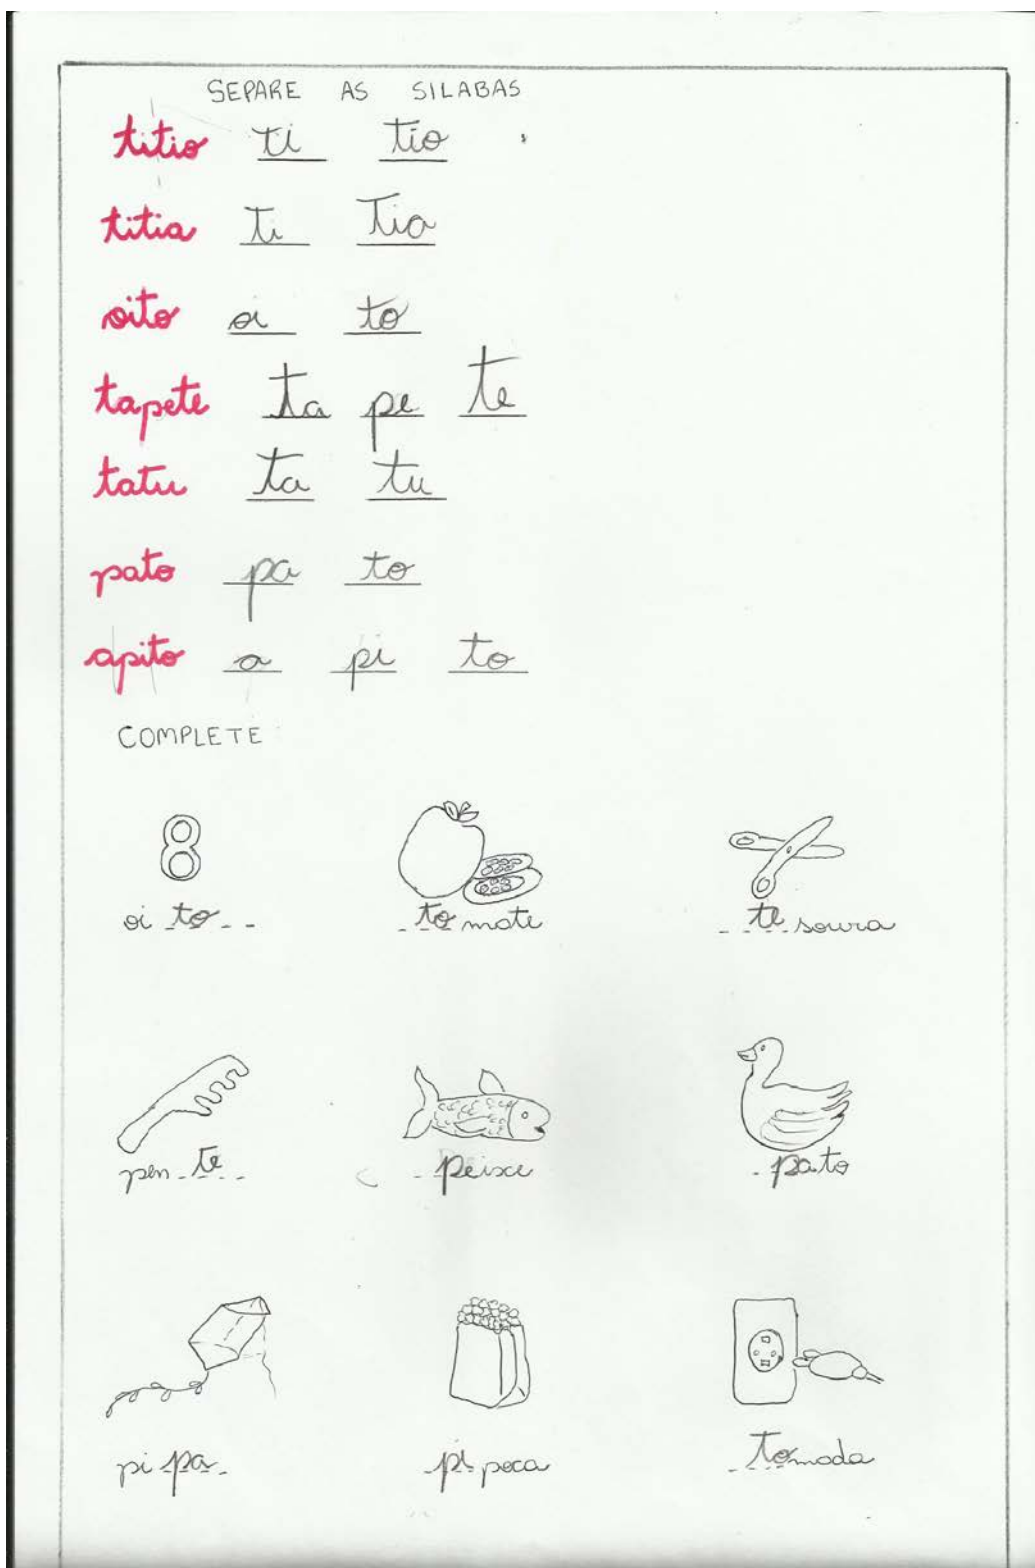 SEPARE AS SILABAS
titio ti tio
titia ti tia
oito oi to
tapete ta pe te
tatu ta tu
pato pa to
apito a pi to
COMPLETE
8
oi to tomate tesoura
pen te peixe pato
pi pa pi poca tomada